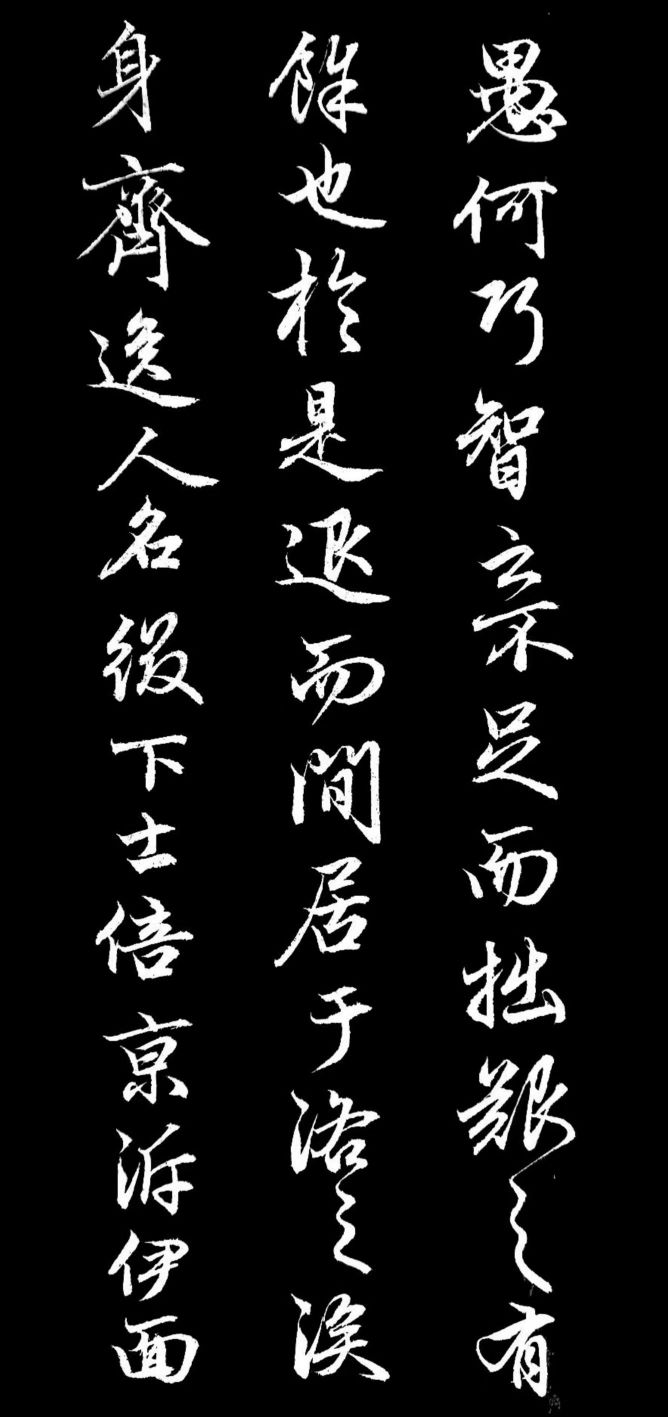 愚何巧智之不足而拙艱之有
餘也於是退而閒居于洛之涘
身齊逸人名綴下士倍京泝伊面